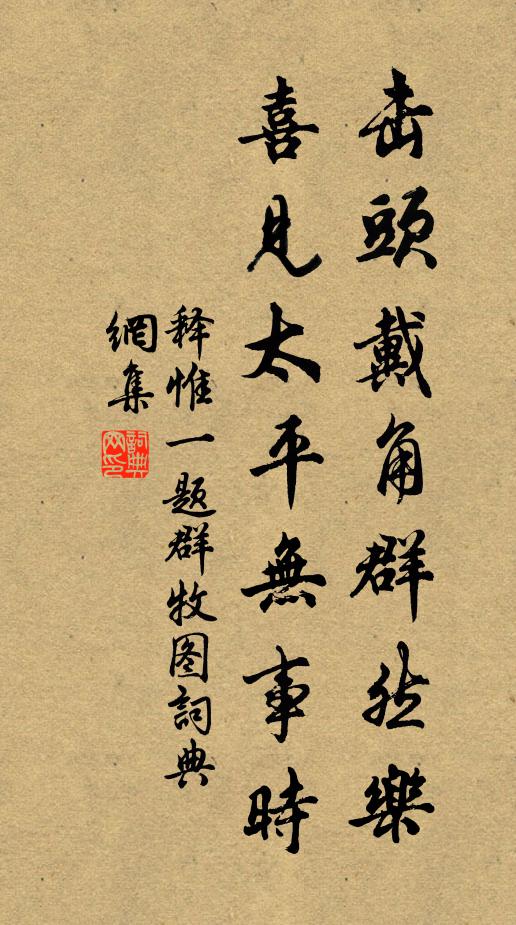 击頭戴角群然樂
喜見太平無事時
释惟一题群牧图詞典
網集
詞典
网印